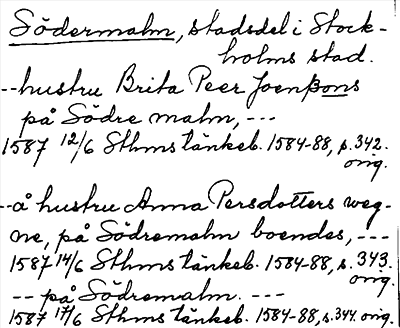 Södermalm, stadsdel i Stock-
holms stad.
--hustru Brita Peer Joenßons
på Södre malm, ---
1587 12/6 Sthms tänkeb. 1584-88, s. 342.
orig.
--å hustru Anna Persdotters weg-
ne, på Södremalm boendes, ---
1587 14/6 Sthms tänkeb. 1584-88, s. 343.
orig.
-- på Södremalm. ---
1587 17/6 Sthms tänkeb. 1584-88, s. 344. orig.